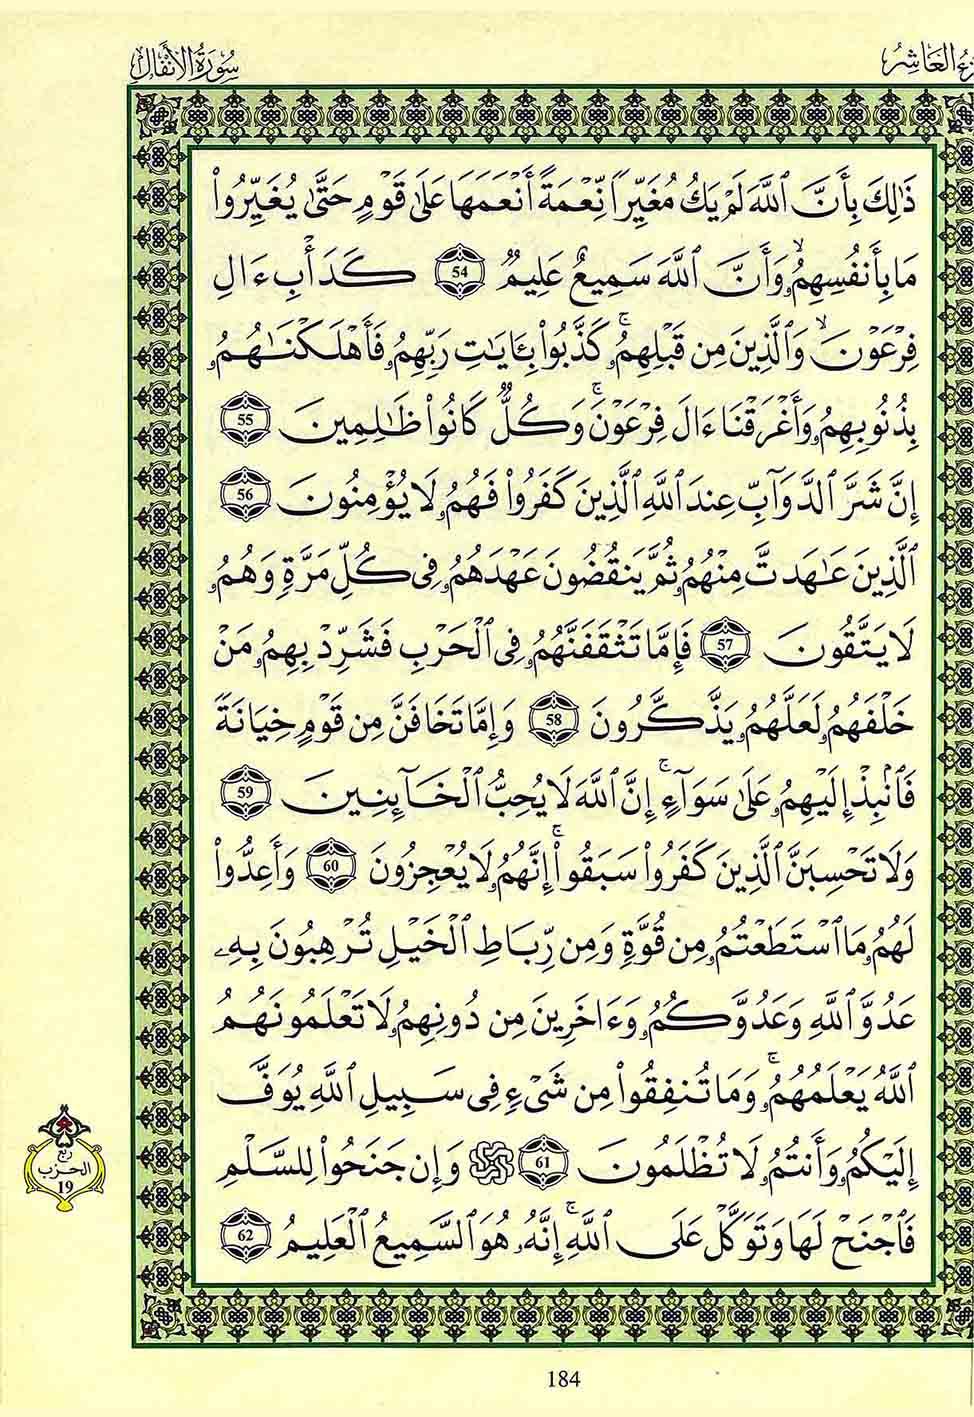 سُورَةُ الأَنْفَال
زءُ العَاشِرُ
ذَٰلِكَ بِأَنَّ ٱللَّهَ لَمْ يَكُ مُغَيِّرًا نِّعْمَةً أَنْعَمَهَا عَلَىٰ قَوْمٍ حَتَّىٰ يُغَيِّرُوا۟
مَا بِأَنفُسِهِمُۥ وَأَنَّ ٱللَّهَ سَمِيعٌ عَلِيمٌ 54 كَدَأْبِ ءَالِ
فِرْعَوْنَ ۙ وَٱلَّذِينَ مِن قَبْلِهِمُۥ ۚ كَذَّبُوا۟ بِـَٔايَـٰتِ رَبِّهِمُۥ فَأَهْلَكْنَـٰهُمُۥ
بِذُنُوبِهِمُۥ وَأَغْرَقْنَا ءَالَ فِرْعَوْنَ ۚ وَكُلٌّ كَانُوا۟ ظَـٰلِمِينَ 55
إِنَّ شَرَّ ٱلدَّوَآبِّ عِندَ ٱللَّهِ ٱلَّذِينَ كَفَرُوا۟ فَهُمُۥ لَا يُؤْمِنُونَ 56
ٱلَّذِينَ عَـٰهَدتَّ مِنْهُمُۥ ثُمَّ يَنقُضُونَ عَهْدَهُمُۥ فِى كُلِّ مَرَّةٍ وَهُمُۥ
لَا يَتَّقُونَ 57 فَإِمَّا تَثْقَفَنَّهُمُۥ فِى ٱلْحَرْبِ فَشَرِّدْ بِهِمُۥ مَنْ
خَلْفَهُمُۥ لَعَلَّهُمُۥ يَذَّكَّرُونَ 58 وَإِمَّا تَخَافَنَّ مِن قَوْمٍ خِيَانَةً
فَٱنۢبِذْ إِلَيْهِمُۥ عَلَىٰ سَوَآءٍ ۚ إِنَّ ٱللَّهَ لَا يُحِبُّ ٱلْخَآئِنِينَ 59
وَلَا تَحْسِبَنَّ ٱلَّذِينَ كَفَرُوا۟ سَبَقُوٓا۟ ۚ إِنَّهُمُۥ لَا يُعْجِزُونَ 60 وَأَعِدُّوا۟
لَهُمُۥ مَا ٱسْتَطَعْتُمُۥ مِن قُوَّةٍ وَمِن رِّبَاطِ ٱلْخَيْلِ تُرْهِبُونَ بِهِۦ
عَدُوَّ ٱللَّهِ وَعَدُوَّكُمُۥ وَءَاخَرِينَ مِن دُونِهِمُۥ لَا تَعْلَمُونَهُمُ
ٱللَّهُ يَعْلَمُهُمُۥ ۚ وَمَا تُنفِقُوا۟ مِن شَىْءٍ فِى سَبِيلِ ٱللَّهِ يُوَفَّ
إِلَيْكُمُۥ وَأَنتُمُۥ لَا تُظْلَمُونَ 61 وَإِن جَنَحُوا۟ لِلسَّلْمِ
فَٱجْنَحْ لَهَا وَتَوَكَّلْ عَلَى ٱللَّهِ ۚ إِنَّهُۥ هُوَ ٱلسَّمِيعُ ٱلْعَلِيمُ 62
ربع
الحزب
19
184